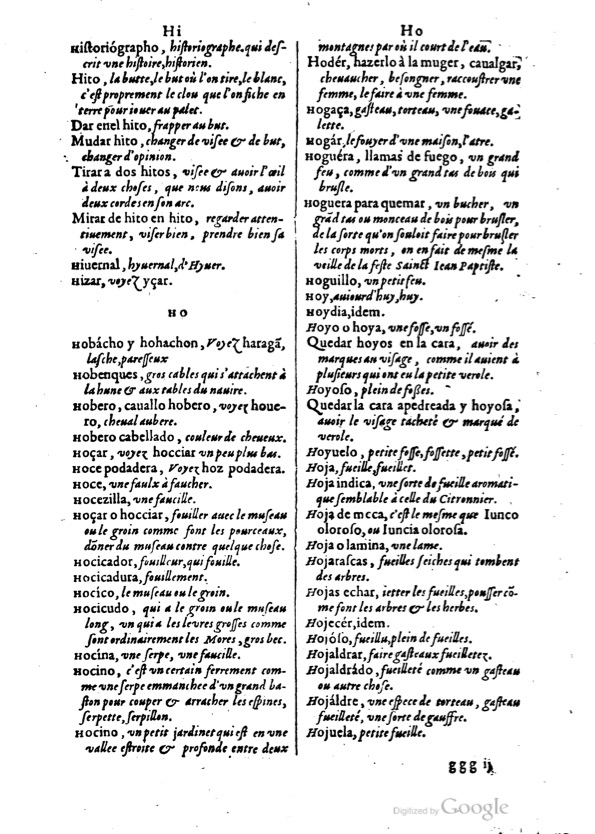 Hi
Historiógrapho, historiographe, qui des-
crit vne histoire, historien.
Hito, la butte, le but où l'on tire, le blanc,
c'est proprement le clou que l'on fiche en
terre pour iouer au palet.
Dar en el hito, frapper au but.
Mudar hito, changer de visee & de but,
changer d'opinion.
Tirar a dos hitos, visee & auoir l'œil
à deux choses, que nous disons, auoir
deux cordes en son arc.
Mirar de hito en hito, regarder atten-
tiuement, viser bien, prendre bien sa
visee.
Hiuernal, hyuernal, d'Hyuer.
Hizar, voyez yçar.
HO
Hobácho y hohachon, Voyez haragã,
lasche, paresseux
Hobenques, gros cables qui s'attachent à
la hune & aux tables du nauire.
Hobero, cauallo hobero, voyez houe-
ro, cheual aubere.
Hobero cabellado, couleur de cheueux.
Hoçar, voyez hocciar vn peu plus bas.
Hoce podadera, Voyez hoz podadera.
Hoce, vne faulx à faucher.
Hocezilla, vne faucille.
Hoçar o hocciar, fouiller auec le museau
ou le groin comme font les pourceaux,
dõner du museau contre quelque chose.
Hocicador, fouilleur, qui fouille.
Hocicadura, fouillement.
Hocico, le museau ou le groin.
Hocicudo, qui a le groin ou le museau
long, vn qui a les levres grosses comme
sont ordinairement les Mores, gros bec.
Hocina, vne serpe, vne faucille.
Hocino, c'est vn certain ferrement com-
me vne serpe emmanchee d'vn grand ba-
ston pour couper & arracher les espines,
serpette, serpillon.
Hocino, vn petit jardinet qui est en vne
vallee estroite & profonde entre deux
Ho
montagnes par où il court de l'eau.
Hodér, hazerlo à la muger, caualgar,
cheuaucher, besongner, raccoustrer vne
femme, le faire à vne femme.
Hogaça, gasteau, torteau, vne fouace, ga-
lette.
Hogár, le fouyer d'vne maison, l'atre.
Hoguéra, llamas de fuego, vn grand
feu, comme d'vn grand tas de bois qui
brusle.
Hoguera para quemar, vn bucher, vn
grãd tas ou monceau de bois pour brusler,
de la sorte qu'on souloit faire pour brusler
les corps morts, on en fait de mesme la
veille de la feste Sainct Iean Baptiste.
Hoguillo, vn petit feu.
Hoy, auiourd'huy, huy.
Hoydia, idem.
Hoyo o hoya, vne fosse, vn fossé.
Quedar hoyos en la cara, auoir des
marques au visage, comme il auient à
plusieurs qui ont eu la petite verole.
Hoyoso, plein de foßes.
Quedar la cara apedreada y hoyosa,
auoir le visage tacheté & marqué de
verole.
Hoyuelo, petite fosse, fossette, petit fossé.
Hoja, fueille, fueillet.
Hoja indica, vne sorte de fueille aromati-
que semblable à celle du Citronnier.
Hoja de meca, c'est le mesme que Iunco
oloroso, ou Iuncia olorosa.
Hoja o lamina, vne lame.
Hojarascas, fueilles seiches qui tombent
des arbres.
Hojas echar, ietter les fueilles, pousser cõ-
me font les arbres & les herbes.
Hojecér, idem.
Hojóso, fueillu, plein de fueilles.
Hojaldrar, faire gasteaux fueilletez.
Hojaldrádo, fueilleté comme vn gasteau
ou autre chose.
Hojáldre, vne espece de torteau, gasteau
fueilleté, vne sorte de gauffre.
Hojuela, petite fueille.
ggg ij
Digitized by Google